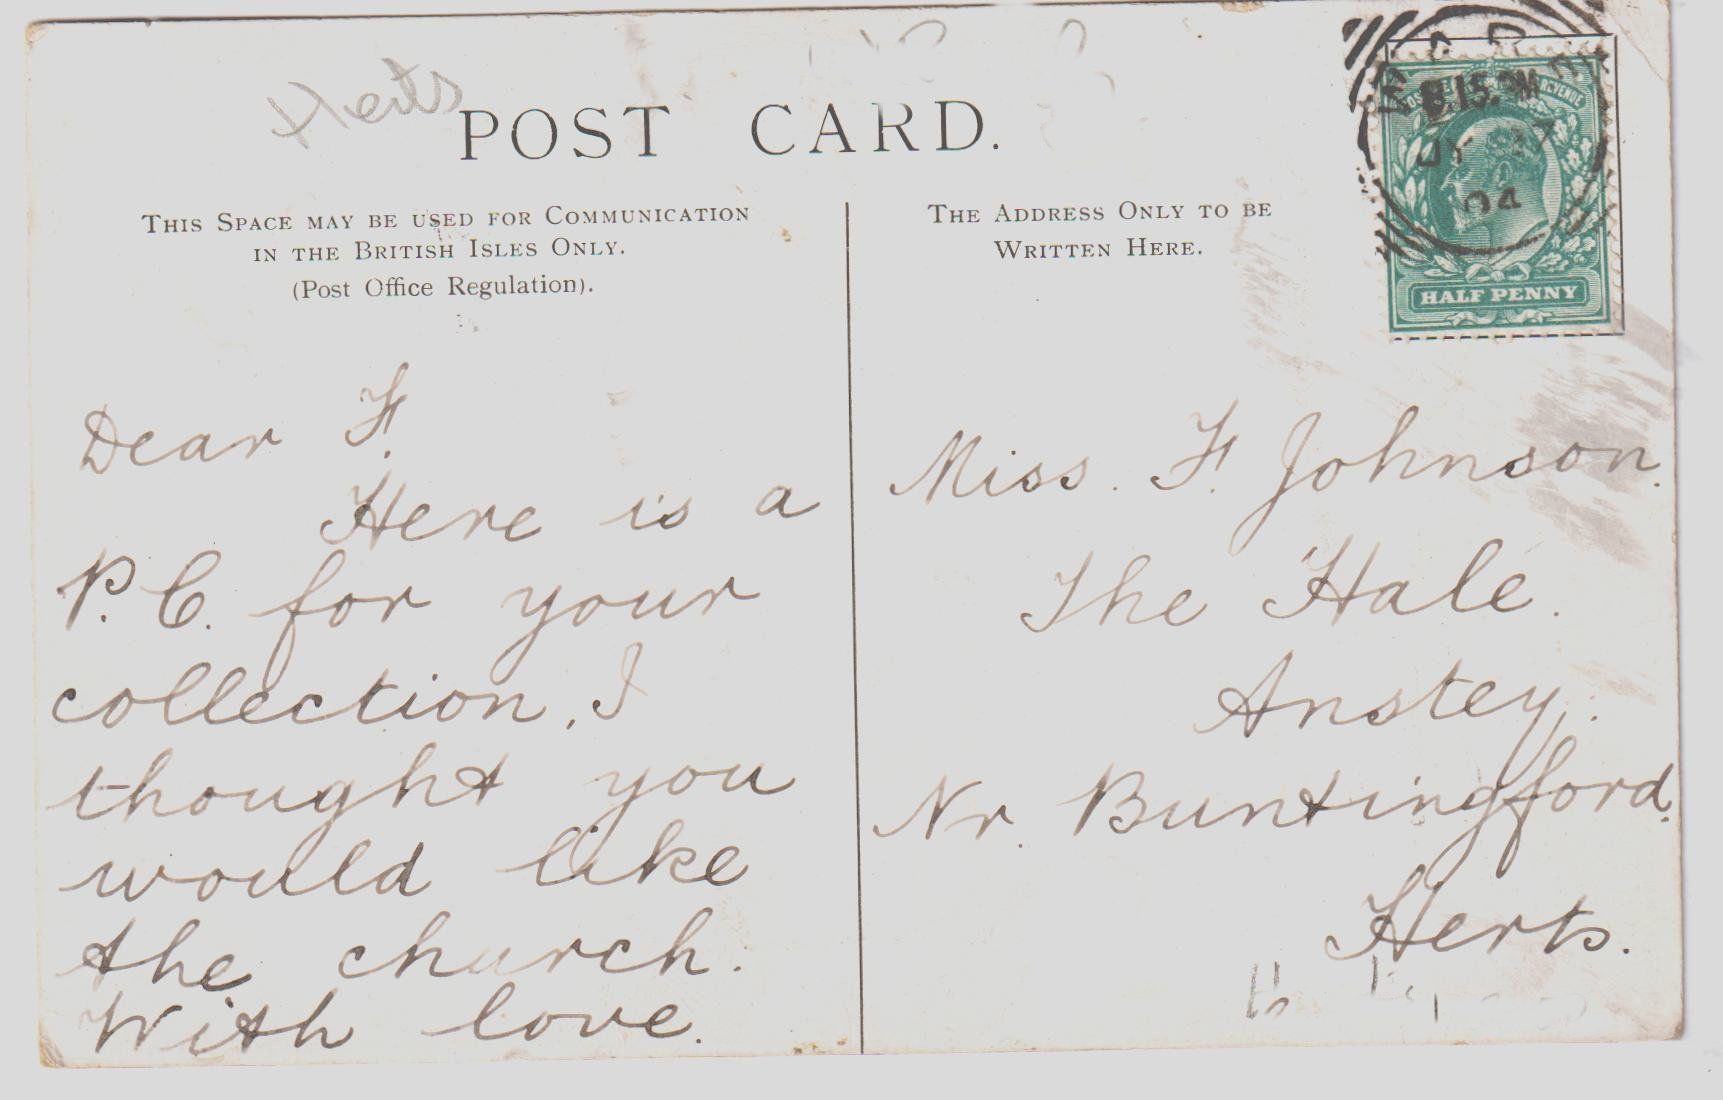 Herts
POST CARD.
THIS SPACE MAY BE USED FOR COMMUNICATION
IN THE BRITISH ISLES ONLY.
(Post Office Regulation).
Dear F.
Here is a
P.C. for your
collection, I
thought you
would like
the church.
With love.
THE ADDRESS ONLY TO BE
WRITTEN HERE.
Miss. F. Johnson.
The Hale.
Anstey.
Nr. Buntingford.
Herts.
8.15 PM
JY 27
04
HALF PENNY